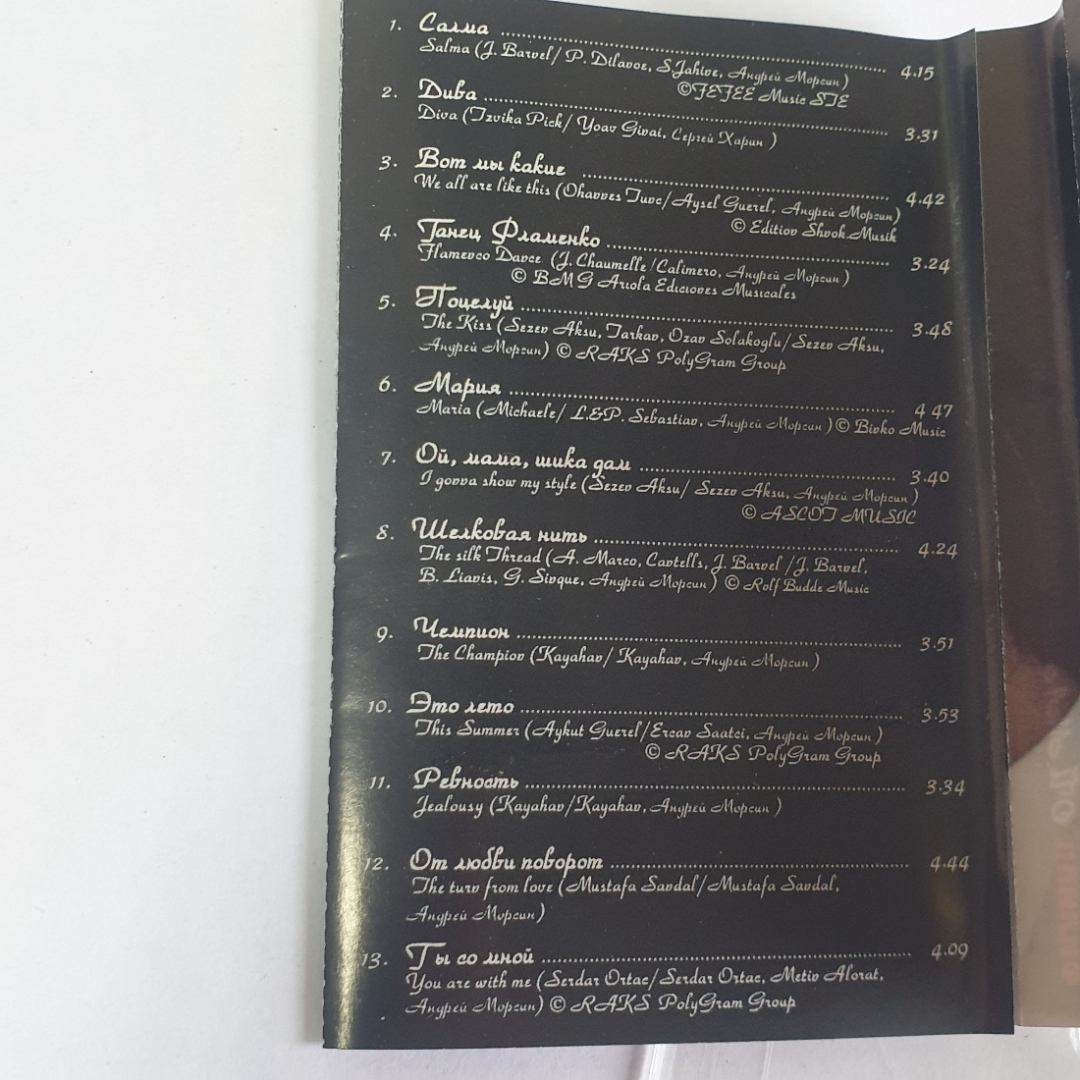 1. Салма 4.15
Salma (J. Barvel/ P. Dilavoe, S.Jahive, Андрей Морсин)
©FEFEE Music STE
2. Дива 3.31
Diva (Tzvika Pick/ Yoav Givai, Сергей Харин )
3. Вот мы какие 4.42
We all are like this (Ohannes Tunc/Aysel Guerel, Андрей Морсин)
© Edition Shnok.Musik
4. Танец Фламенко 3.24
Flamenco Dance (J. Chaumelle /Calimero, Андрей Морсин )
© BMG Ariola Ediciones Musicales
5. Поцелуй 3.48
The Kiss (Sezen Aksu, Tarkan, Ozan Solakoglu/Sezen Aksu,
Андрей Морсин) © RAKS PolyGram Group
6. Мария 4 47
Maria (Michaele/ L.&P. Sebastian, Андрей Морсин )© Binko Music
7. Ой, мама, шика дам 3.40
I gonna show my style (Sezen Aksu/ Sezen Aksu, Андрей Морсин )
© ASCOT MUSIC
8. Шелковая нить 4.24
The silk Thread (A. Marco, Cantells, J. Barvel /J. Barvel,
B. Lianis, G. Sinque, Андрей Морсин ) © Rolf Budde Music
9. Чемпион 3.51
The Champion (Kayahan/ Kayahan, Андрей Морсин )
10. Это лето 3.53
This Summer (Aykut Guerel/Ercan Saatci, Андрей Морсин )
© RAKS PolyGram Group
11. Ревность 3.34
Jealousy (Kayahan/Kayahan, Андрей Морсин )
12. От любви поворот 4.44
The turn from love ( Mustafa Sandal/ Mustafa Sandal,
Андрей Морсин)
13. Ты со мной 4.09
You are with me (Serdar Ortac/Serdar Ortac, Metin Alorat,
Андрей Морсин) © RAKS PolyGram Group